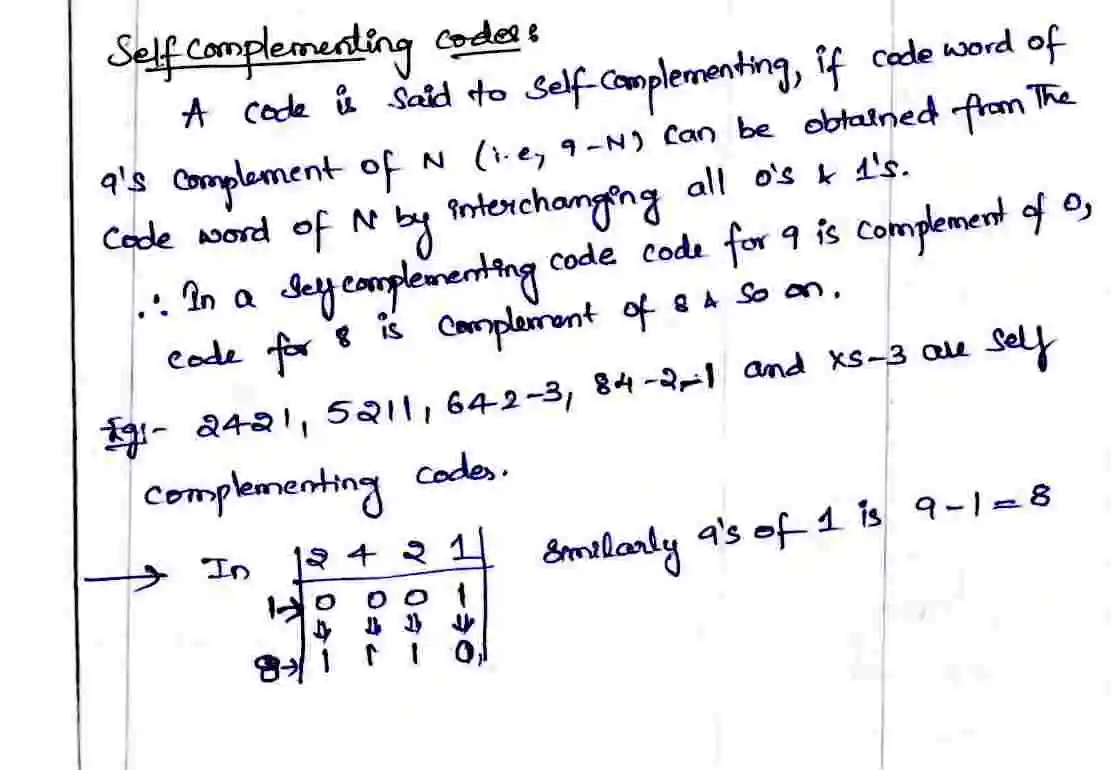 Self complementing codes:
A code is said to self-complementing, if code word of
9's complement of N (i.e, 9-N) can be obtained from The
code word of N by interchanging all 0's & 1's.
∴ In a self complementing code code for 9 is complement of 0,
code for 8 is complement of 8 & so on.
Eg:- 2421, 5211, 642-3, 84-2-1 and XS-3 are self
complementing codes.
→ In 2 4 2 1 Similarly 9's of 1 is 9-1=8
1→ 0 0 0 1
⇓ ⇓ ⇓ ⇓
8→ 1 1 1 0